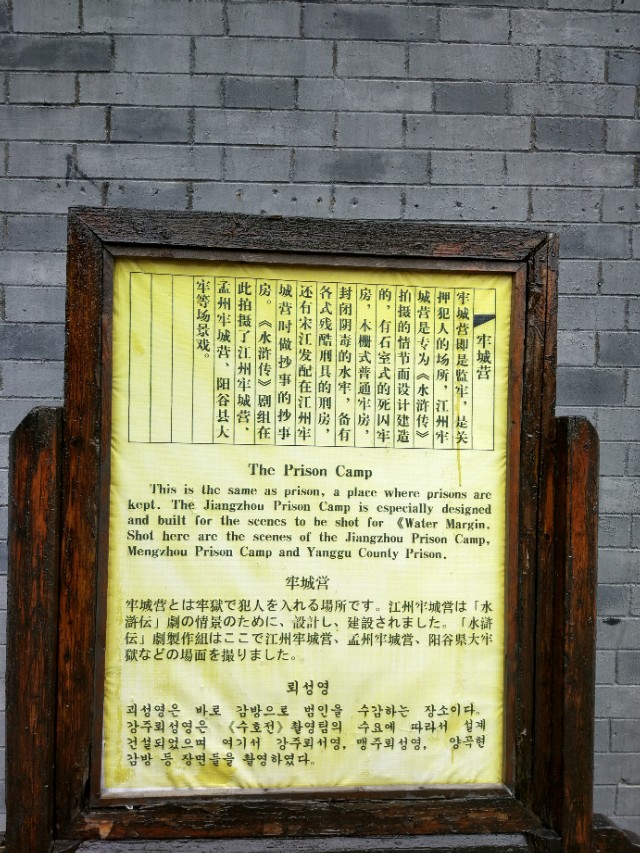 牢城营
牢城营即是监牢，是关
押犯人的场所，江州牢
城营是专为《水浒传》
拍摄的情节而设计建造
的，有石室式的死囚牢
房，木栅式普通牢房，
封闭阴毒的水牢，备有
各式残酷刑具的刑房，
还有宋江发配在江州牢
城营时做抄事的抄事
房。《水浒传》剧组在
此拍摄了江州牢城营，
孟州牢城营、阳谷县大
牢等场景戏。
The Prison Camp
This is the same as prison, a place where prisons are
kept. The Jiangzhou Prison Camp is especially designed
and built for the scenes to be shot for 《Water Margin.
Shot here are the scenes of the Jiangzhou Prison Camp,
Mengzhou Prison Camp and Yanggu County Prison.
牢城営
牢城营とは牢獄で犯人を入れる場所です。江州牢城営は「水
滸伝」劇の情景のために、設計し、建設されました。「水滸
伝」劇製作組はここで江州牢城営、孟州牢城営、阳谷県大牢
獄などの場面を撮りました。
뢰성영
괴성영은 바로 감방으로 범인을 수감하는 장소이다.
강주뢰성영은 《수호전》촬영팀의 수요에 따라서 설계
건설되었으며 여기서 강주뢰서영, 맹주뢰성영, 양곡현
감방 등 장면들을 촬영하였다.